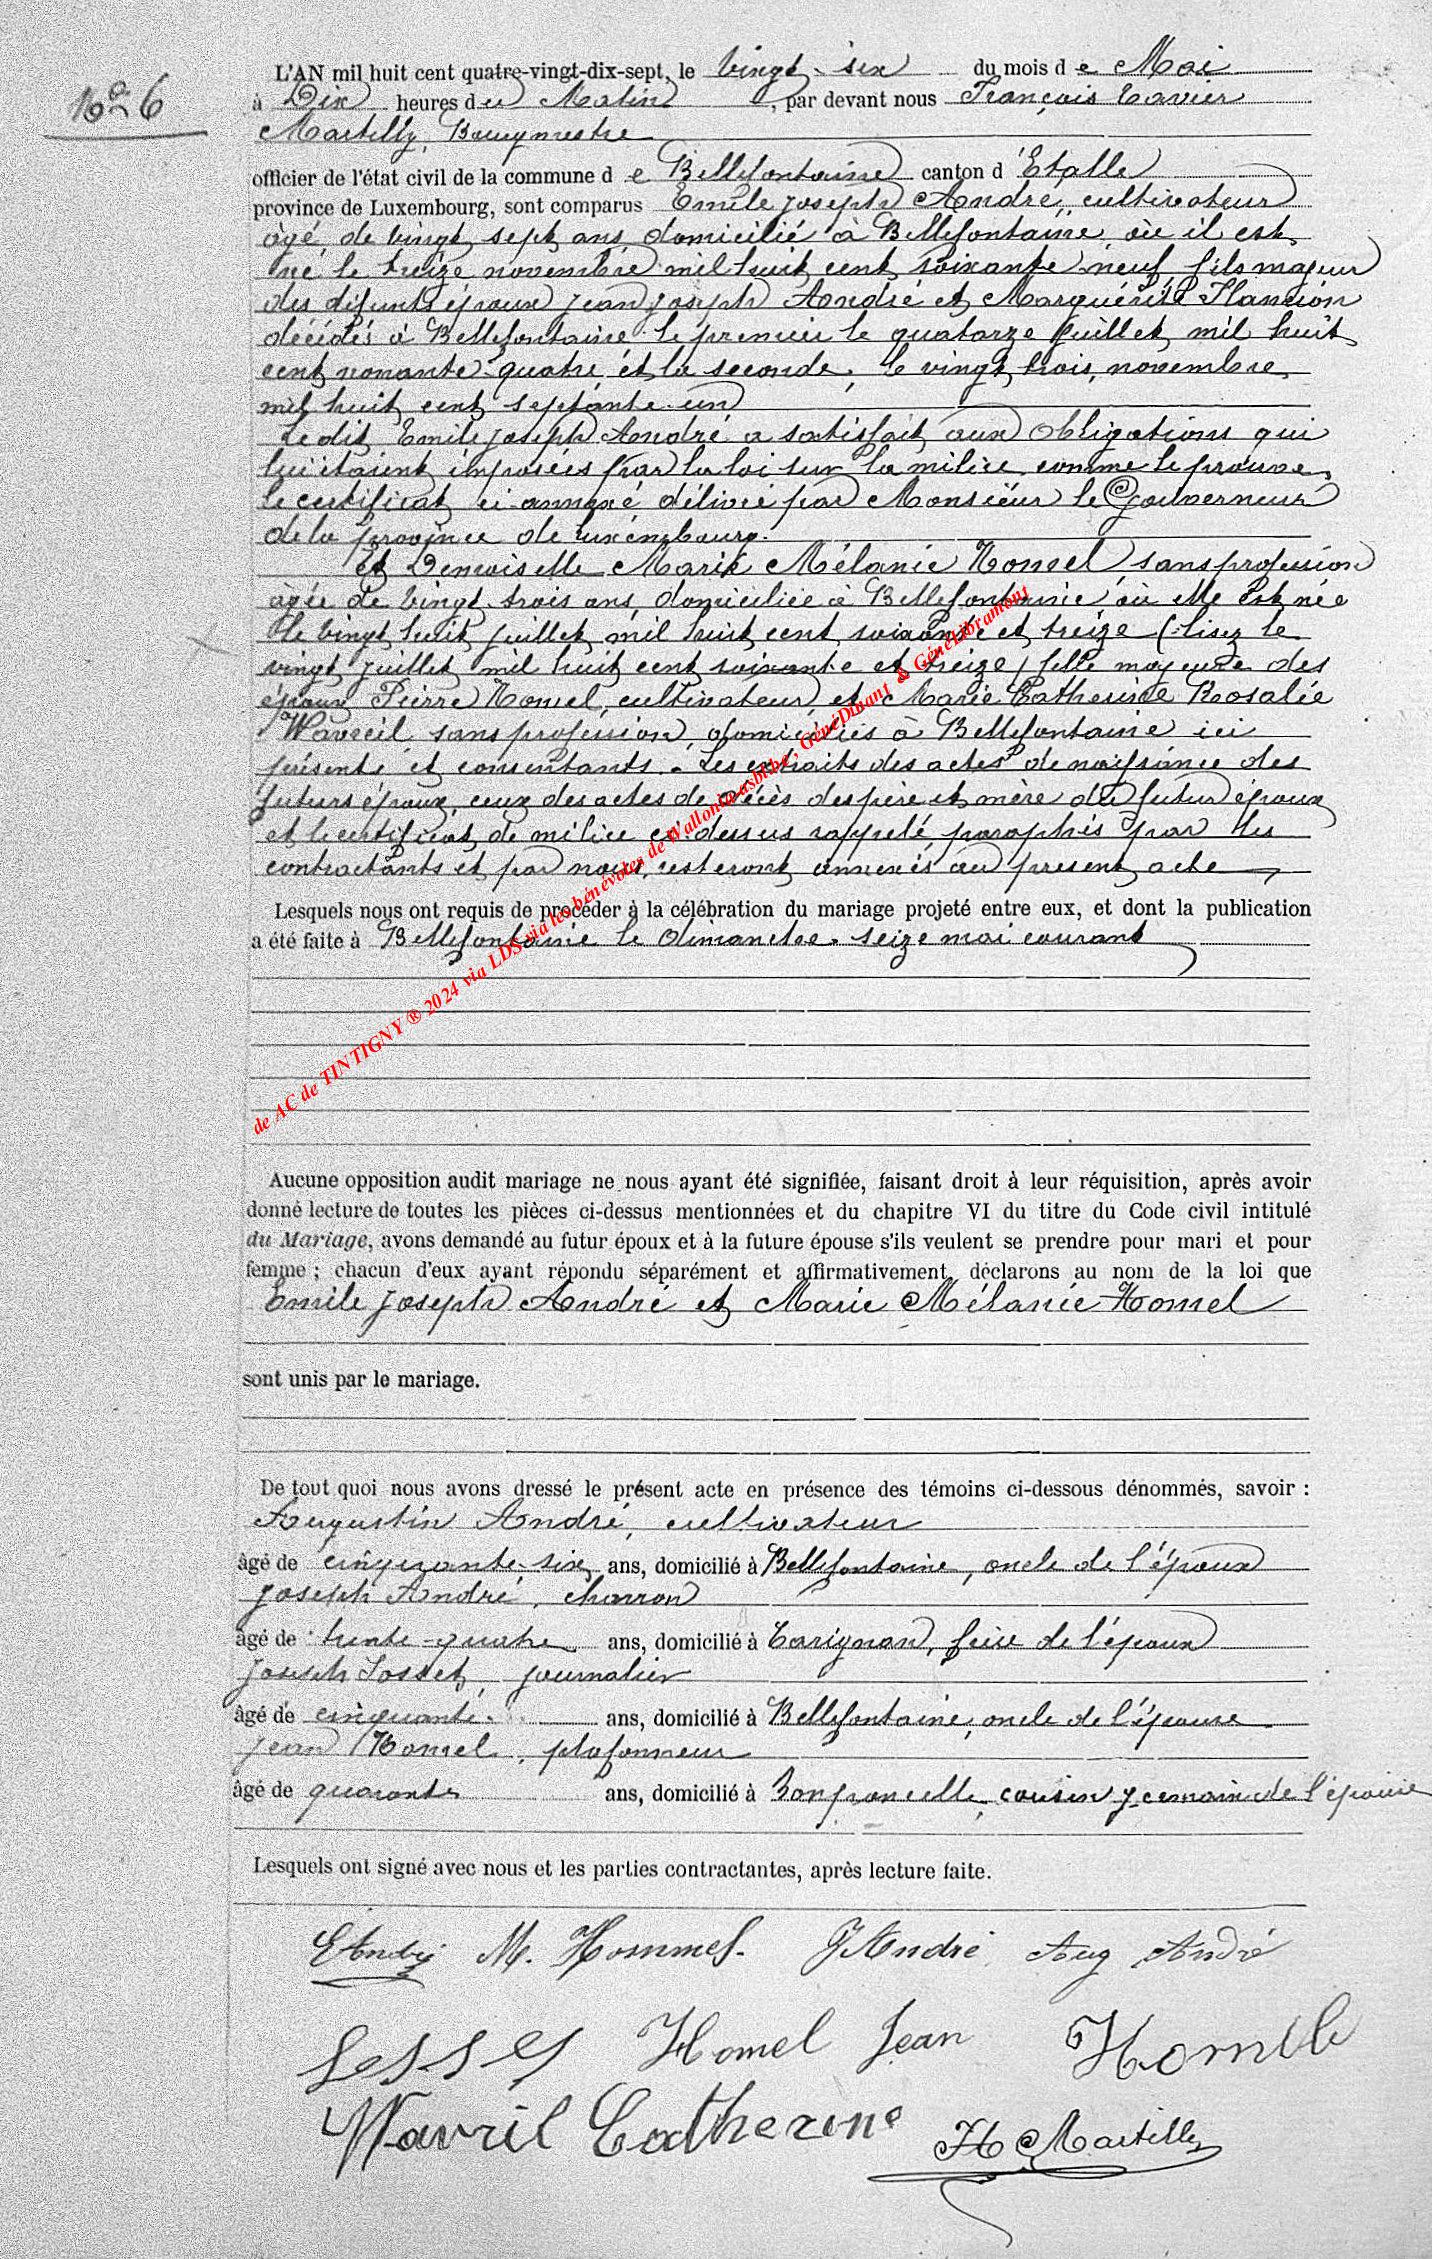 N° 6
L'AN mil huit cent quatre-vingt-dix-sept, le vingt-six du mois de Mai
à Dix heures du Matin, par devant nous François Xavier
Martilly, Bourgmestre
officier de l'état civil de la commune de Bellefontaine canton d'Etalle
province de Luxembourg, sont comparus Emile Joseph André, cultivateur
âgé de vingt sept ans domicilié à Bellefontaine, où il est
né le treize novembre mil huit cent soixante-neuf, fils majeur
des défunts époux Jean Joseph André et Marguérite Flamion
décédés à Bellefontaine le premier le quatorze juillet mil huit
cent nonante-quatre et la seconde, le vingt trois novembre
mil huit cent septante-un
Ledit Emile Joseph André a satisfait aux obligations qui
lui étaient imposées par la loi sur la milice comme le prouve
le certificat ci-annexé délivré par Monsieur le Gouverneur
de la province de Luxembourg.
Et Demoiselle Marie Mélanie Homel sans profession
âgée de vingt-trois ans, domiciliée à Bellefontaine où elle est née
le vingt huit juillet mil huit cent soixante et treize (lisez le
vingt juillet mil huit cent soixante et treize) fille majeure des
époux Pierre Homel, cultivateur, et Marie Catherine Rosalie
Wavreil sans profession, domiciliés à Bellefontaine ici
présents et consentants. - Les extraits des actes de naissance des
futurs époux, ceux des actes de décès des père et mère du futur époux
et le certificat de milice ci-dessus rappelé paraphés par les
contractants et par nous, resteront annexés au présent acte
Lesquels nous ont requis de procéder à la célébration du mariage projeté entre eux, et dont la publication
a été faite à Bellefontaine le dimanche seize mai courant
de AC de TINTIGNY ® 2024 via LDS via les bénévoles de Wallonia asbl be, GénéDinant & GénéLibramont
Aucune opposition audit mariage ne nous ayant été signifiée, faisant droit à leur réquisition, après avoir
donné lecture de toutes les pièces ci-dessus mentionnées et du chapitre VI du titre du Code civil intitulé
du Mariage, avons demandé au futur époux et à la future épouse s'ils veulent se prendre pour mari et pour
femme ; chacun d'eux ayant répondu séparément et affirmativement, déclarons au nom de la loi que
Emile Joseph André et Marie Mélanie Homel
sont unis par le mariage.
De tout quoi nous avons dressé le présent acte en présence des témoins ci-dessous dénommés, savoir :
Augustin André, cultivateur
âgé de cinquante-six ans, domicilié à Bellefontaine, oncle de l'époux
Joseph André, charron
âgé de trente-quatre ans, domicilié à Carignan, frère de l'époux
Joseph Josset, journalier
âgé de cinquante ans, domicilié à Bellefontaine, oncle de l'épouse
Jean Homel, plafonneur
âgé de quarante ans, domicilié à cousin germain de l'épouse
Lesquels ont signé avec nous et les parties contractantes, après lecture faite.
EAndré M. Hommel. JAndré Aug André
Homel Jean Homel
Wavril Catherine Martilly